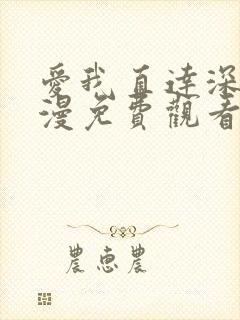 愛我直達深
漫免費觀看
農惠農